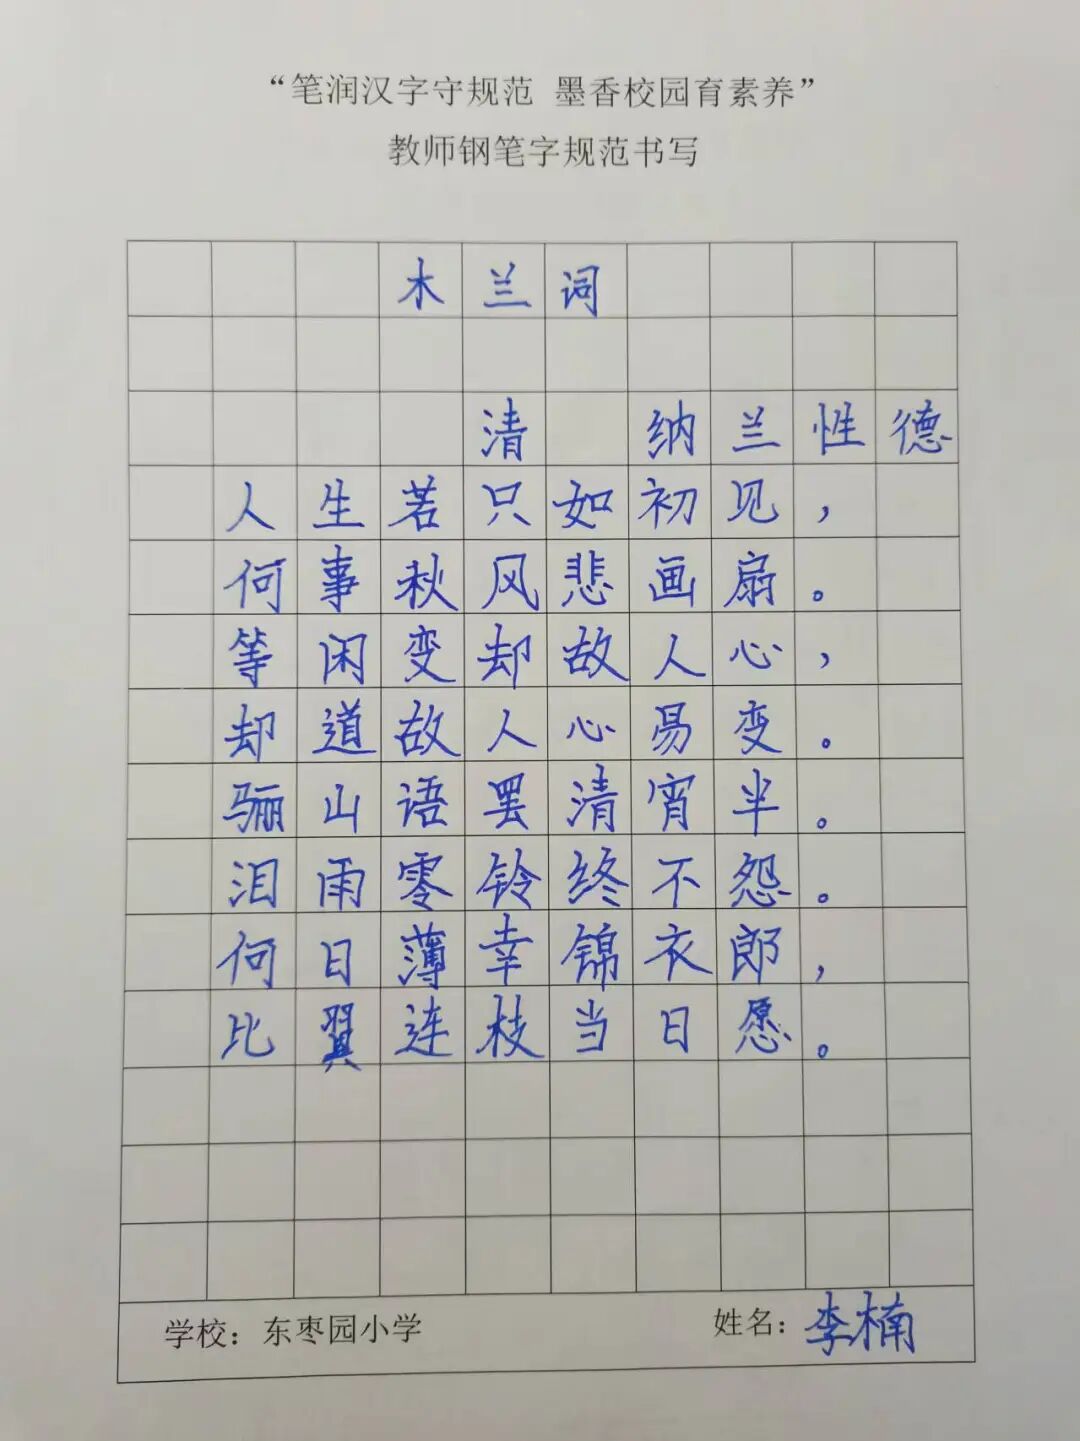 “笔润汉字守规范 墨香校园育素养”
教师钢笔字规范书写
木兰词
清 纳兰性德
人生若只如初见，
何事秋风悲画扇。
等闲变却故人心，
却道故人心易变。
骊山语罢清宵半。
泪雨零铃终不怨。
何日薄幸锦衣郎，
比翼连枝当日愿。
学校：东枣园小学 姓名：李楠